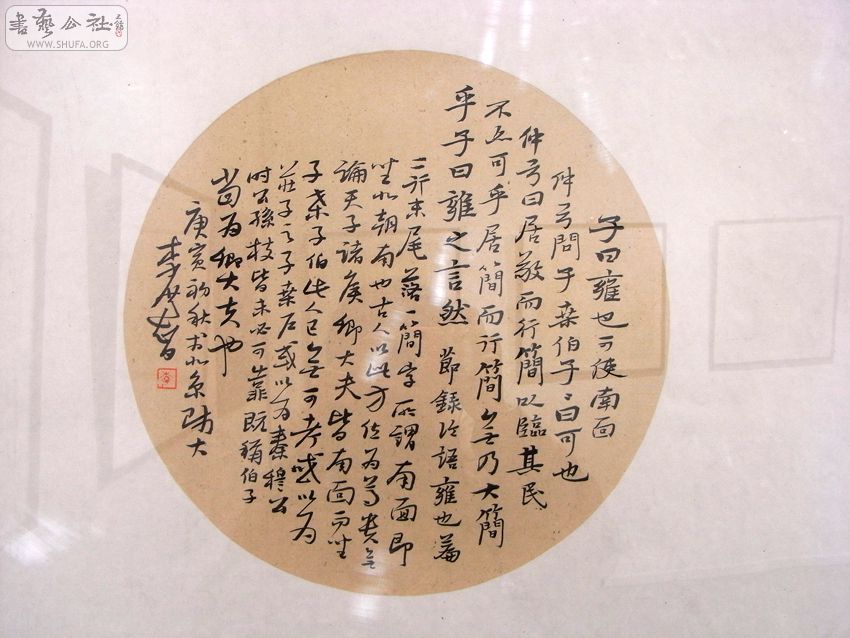 書藝公社
WWW.SHUFA.ORG
子曰雍也可使南面
仲弓問子桑伯子子曰可也
仲弓曰居敬而行簡以臨其民
不亦可乎居簡而行簡無乃大簡
乎子曰雍之言然 節錄論語雍也篇
二行末尾落一簡字所謂南面即
坐北朝南也古人以此方位為尊貴無
論天子諸侯卿大夫皆南面而坐
子桑子伯此人已無可考或以為
莊子之子桑戶或以為秦穆公
時公孫枝皆未必可靠既稱伯子
當為卿大夫也
庚寅初秋於北京師大